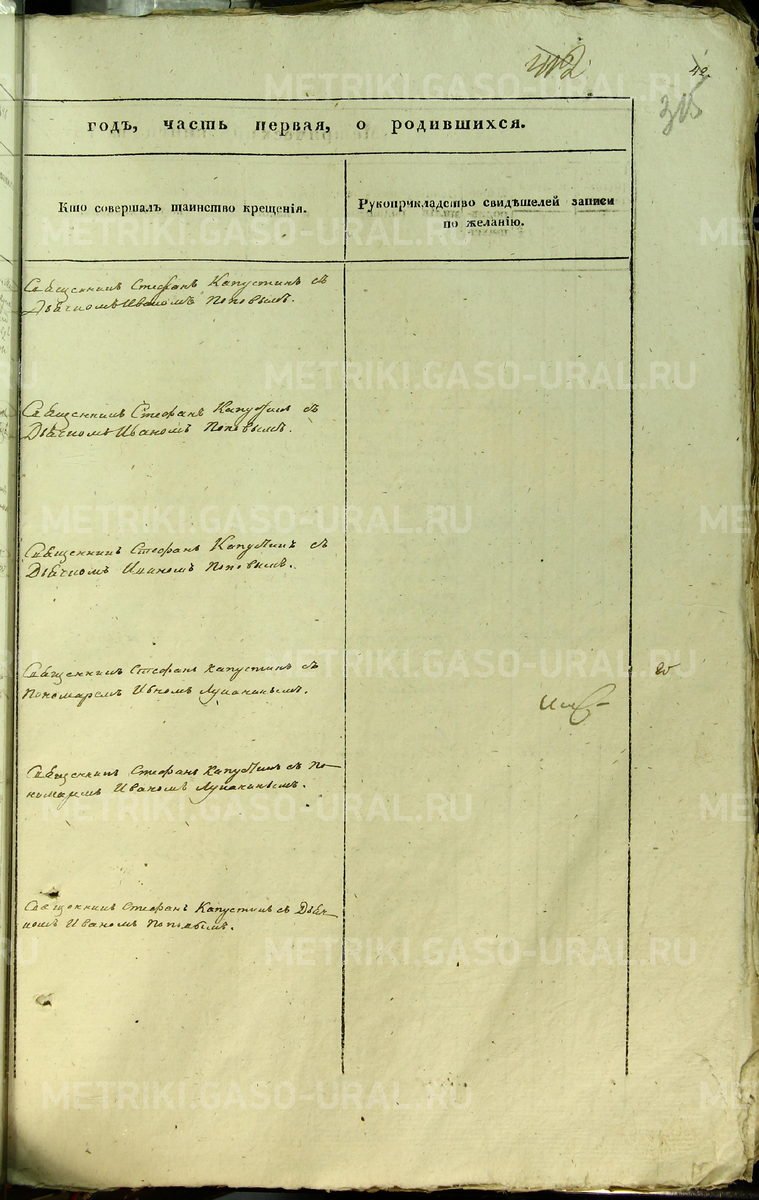 42.
315
годъ, часть первая, о родившихся.
Кто совершалъ таинство крещенія.
Рукоприкладство свидѣтелей записи
по желанію.
Священникъ Стефанъ Капустинъ съ
Дьячкомъ Иваномъ Поповымъ.
Священникъ Стефанъ Капустинъ съ
Дьячкомъ Иваномъ Поповымъ.
Священникъ Стефанъ Капустинъ съ
Дьячкомъ Иваномъ Поповымъ.
Священникъ Стефанъ Капустинъ съ
Пономаремъ Иваномъ Лукинымъ.
Священникъ Стефанъ Капустинъ съ по-
номаремъ Иваномъ
Священникъ Стефанъ Капустинъ съ Дьяч-
комъ Иваномъ Поповымъ.
METRIKI.GASO-URAL.RU